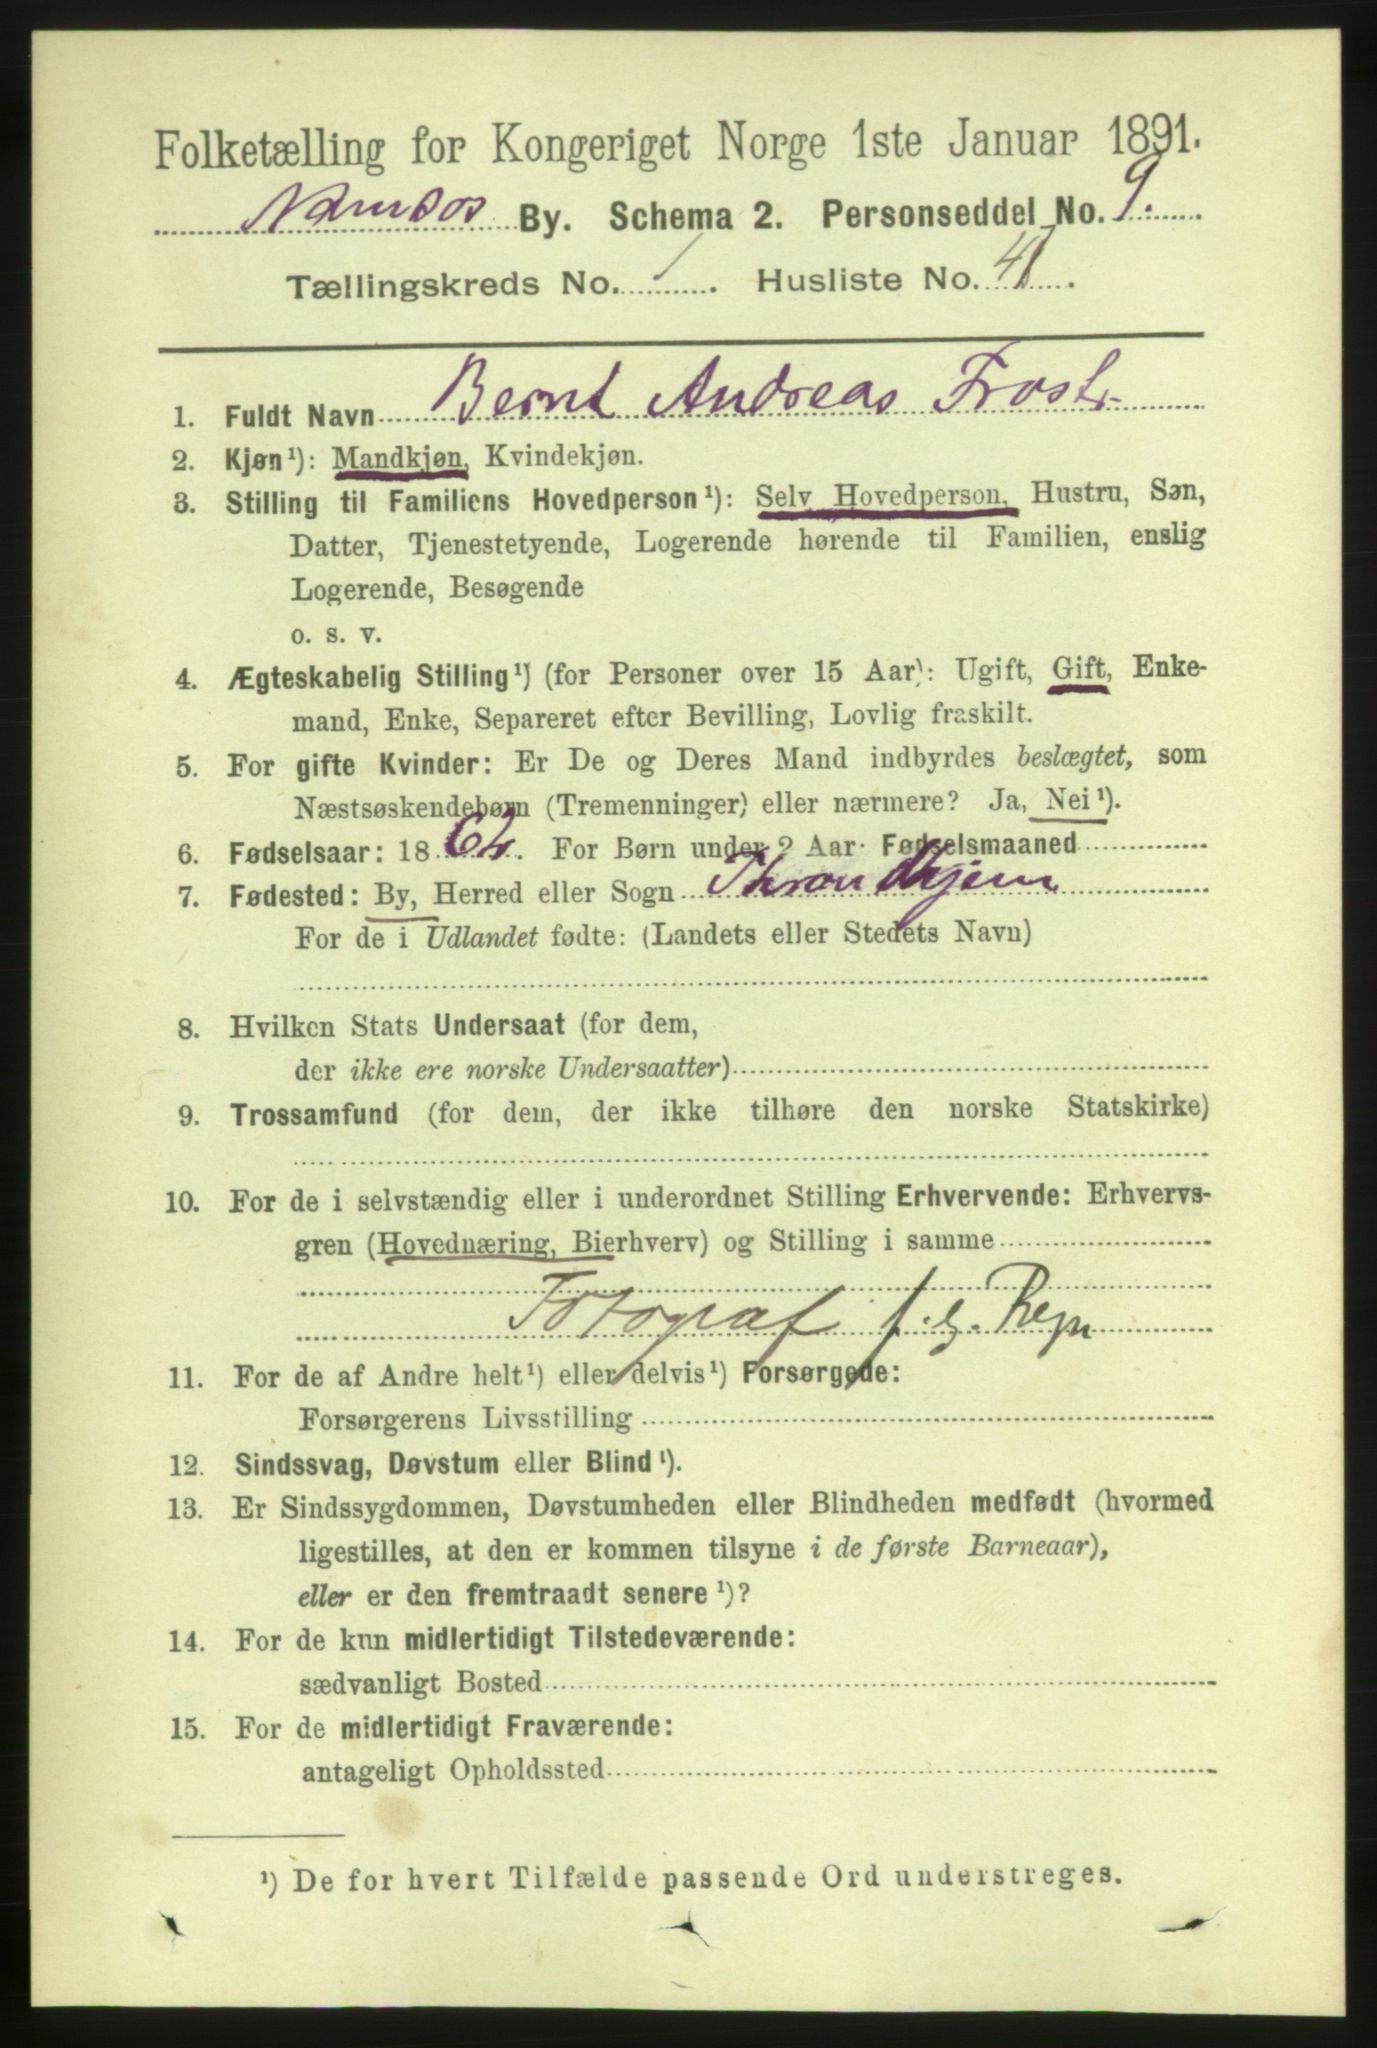 Folketælling for Kongeriget Norge 1ste Januar 1891.
Namsos By. Schema 2. Personseddel No. 9.
Tællingskreds No. 1. Husliste No. 41.
1. Fuldt Navn Bernt Andreas Frost
2. Kjøn¹): Mandkjøn, Kvindekjøn.
3. Stilling til Familiens Hovedperson¹): Selv Hovedperson, Hustru, Søn,
Datter, Tjenestetyende, Logerende hørende til Familien, enslig
Logerende, Besøgende
o. s. v.
4. Ægteskabelig Stilling¹) (for Personer over 15 Aar): Ugift, Gift, Enke-
mand, Enke, Separeret efter Bevilling, Lovlig fraskilt.
5. For gifte Kvinder: Er De og Deres Mand indbyrdes beslægtet, som
Næstsøskendebørn (Tremenninger) eller nærmere? Ja, Nei¹).
6. Fødselsaar: 1862. For Børn under 2 Aar Fødselsmaaned
7. Fødested: By, Herred eller Sogn Throndhjem
For de i Udlandet fødte: (Landets eller Stedets Navn)
8. Hvilken Stats Undersaat (for dem,
der ikke ere norske Undersaatter)
9. Trossamfund (for dem, der ikke tilhøre den norske Statskirke)
10. For de i selvstændig eller i underordnet Stilling Erhvervende: Erhvervs-
gren (Hovednæring, Bierhverv) og Stilling i samme
Fotograf f. e. Regn
11. For de af Andre helt¹) eller delvis¹) Forsørgede:
Forsørgerens Livsstilling
12. Sindssvag, Døvstum eller Blind¹).
13. Er Sindssygdommen, Døvstumheden eller Blindheden medfødt (hvormed
ligestilles, at den er kommen tilsyne i de første Barneaar),
eller er den fremtraadt senere¹)?
14. For de kun midlertidigt Tilstedeværende:
sædvanligt Bosted
15. For de midlertidigt Fraværende:
antageligt Opholdssted
¹) De for hvert Tilfælde passende Ord understreges.